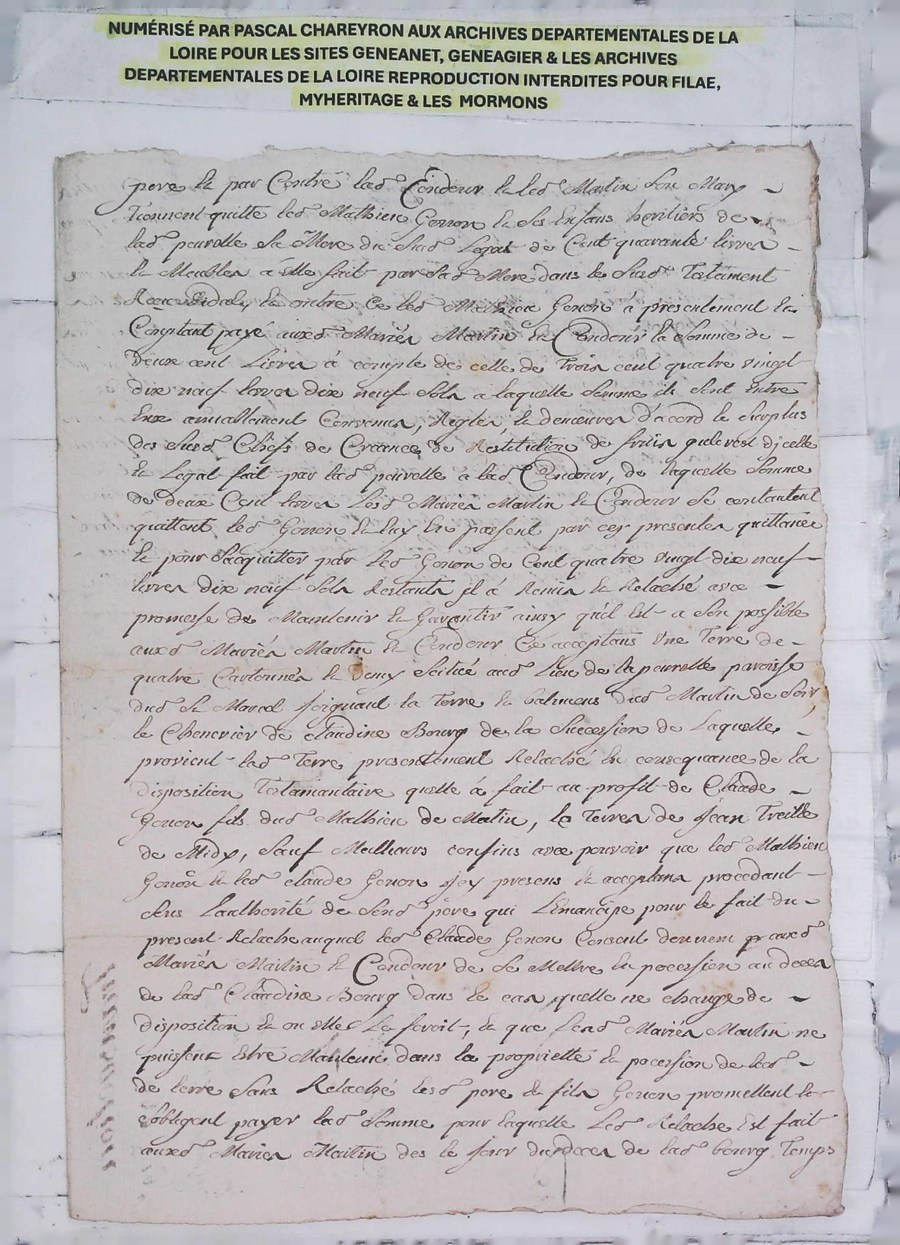 NUMÉRISÉ PAR PASCAL CHAREYRON AUX ARCHIVES DEPARTEMENTALES DE LA
LOIRE POUR LES SITES GENEANET, GENEAGIER & LES ARCHIVES
DEPARTEMENTALES DE LA LOIRE REPRODUCTION INTERDITES POUR FILAE,
MYHERITAGE & LES MORMONS
pere & par Contre lad. Condour & led. Martin son Mary
Tiennent quitte led. Mathieu Gonon & ses Enfans heritiers de
lad. peurelle sa Mere du susd. Legat de Cent quarante livres
& Meubles a elle fait par sad. Mere dans le susd. Testament
& en outre ce led. Mathieu Gonon à presentement &
Comptant payé auxd. Mariés Martin & Condour la somme de
Deux cent Livres à compte de celle de Trois cent quatre vingt
dix neuf livres dix neuf sols a laquelle somme ils sont entre
Eux amiablement Convenus, Reglés, & demeures d'acord le surplus
des susd. Chefs de Creance, de Restitution de fruits
& Legat fait par lad. peurelle à lad. Condour, de laquelle somme
de deux Cent livres Lesd. Mariés Martin & Condour se contentent
quittent led. Gonon & luy En passent par ces presentes quittance
& pour s'acquitter par led. Gonon de Cent quatre vingt dix neuf
livres dix neuf sols Restants il à Remis & Relaché avec
promesse de Maintenir & Garantir ainsy qu'il Est a son possible
auxd. Mariés Martin & Condour Ce acceptans Une Terre de
quatre Cartonnés & Demy scitüé aud. Lieu de la peurelle paroisse
dud. St Marcel Joignant la Terre & batimens dud. Martin de soir,
le Chenevier de Claudine Bourg de la succession de Laquelle
provient lad. Terre presentement Relaché En consequance de la
disposition Testamantaire quelle à fait au profit de Claude
Gonon fils dud. Mathieu de Matin, la Terre de Jean Treille
de Midy, sauf Meilleurs confins avec pouvoir que led. Mathieu
Gonon & led. Claude Gonon Icy presens & acceptans procedant
sous Lauthorité de sond. pere qui Lemancipe pour le fait du
present Relache auquel led. Claude Gonon Consent donnent auxd.
Mariés Martin & Condour de se Mettre En pocession au deces
de lad. Claudine Bourg dans le cas quelle ne change de
disposition & ou elle Le feroit, & que Lesd. Mariés Martin ne
puissent Etre Maintenu dans la proprietté & pocession de lad.
de terre sans Relaché lesd. pere & fils Gonon promettent &
sobligent payer lad. somme pour laquelle Led. Relache Est fait
auxd. Mariés Martin des le Jour du deces de lad. bourg Temps